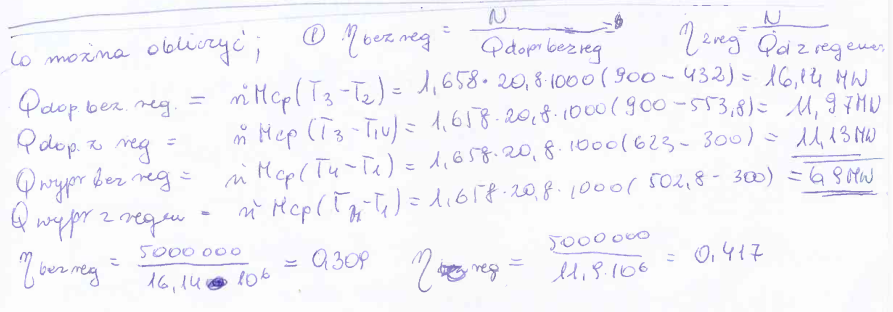 co można obliczyć; ① η bez reg = N / Qdopr bez reg η z reg = N / Qd z regener.
Q dop. bez. reg. = ṅ Mcp (T3 − T2) = 1,658 · 20,8 · 1000 (900 − 432) = 16,14 MW
Q dop. z reg = ṅ Mcp (T3 − TIV) = 1,658 · 20,8 · 1000 (900 − 553,8) = 11,97 MW
Q wypr bez reg = ṅ Mcp (T4 − T1) = 1,658 · 20,8 · 1000 (623 − 300) = 11,13 MW
Q wypr z regen = ṅ Mcp ( − T1) = 1,658 · 20,8 · 1000 ( 502,8 − 300) = 6,9 MW
η bez reg = 5000 000 / 16,14 10⁶ = 0,309 η reg = 5000 000 / 11,9 · 10⁶ = 0,417